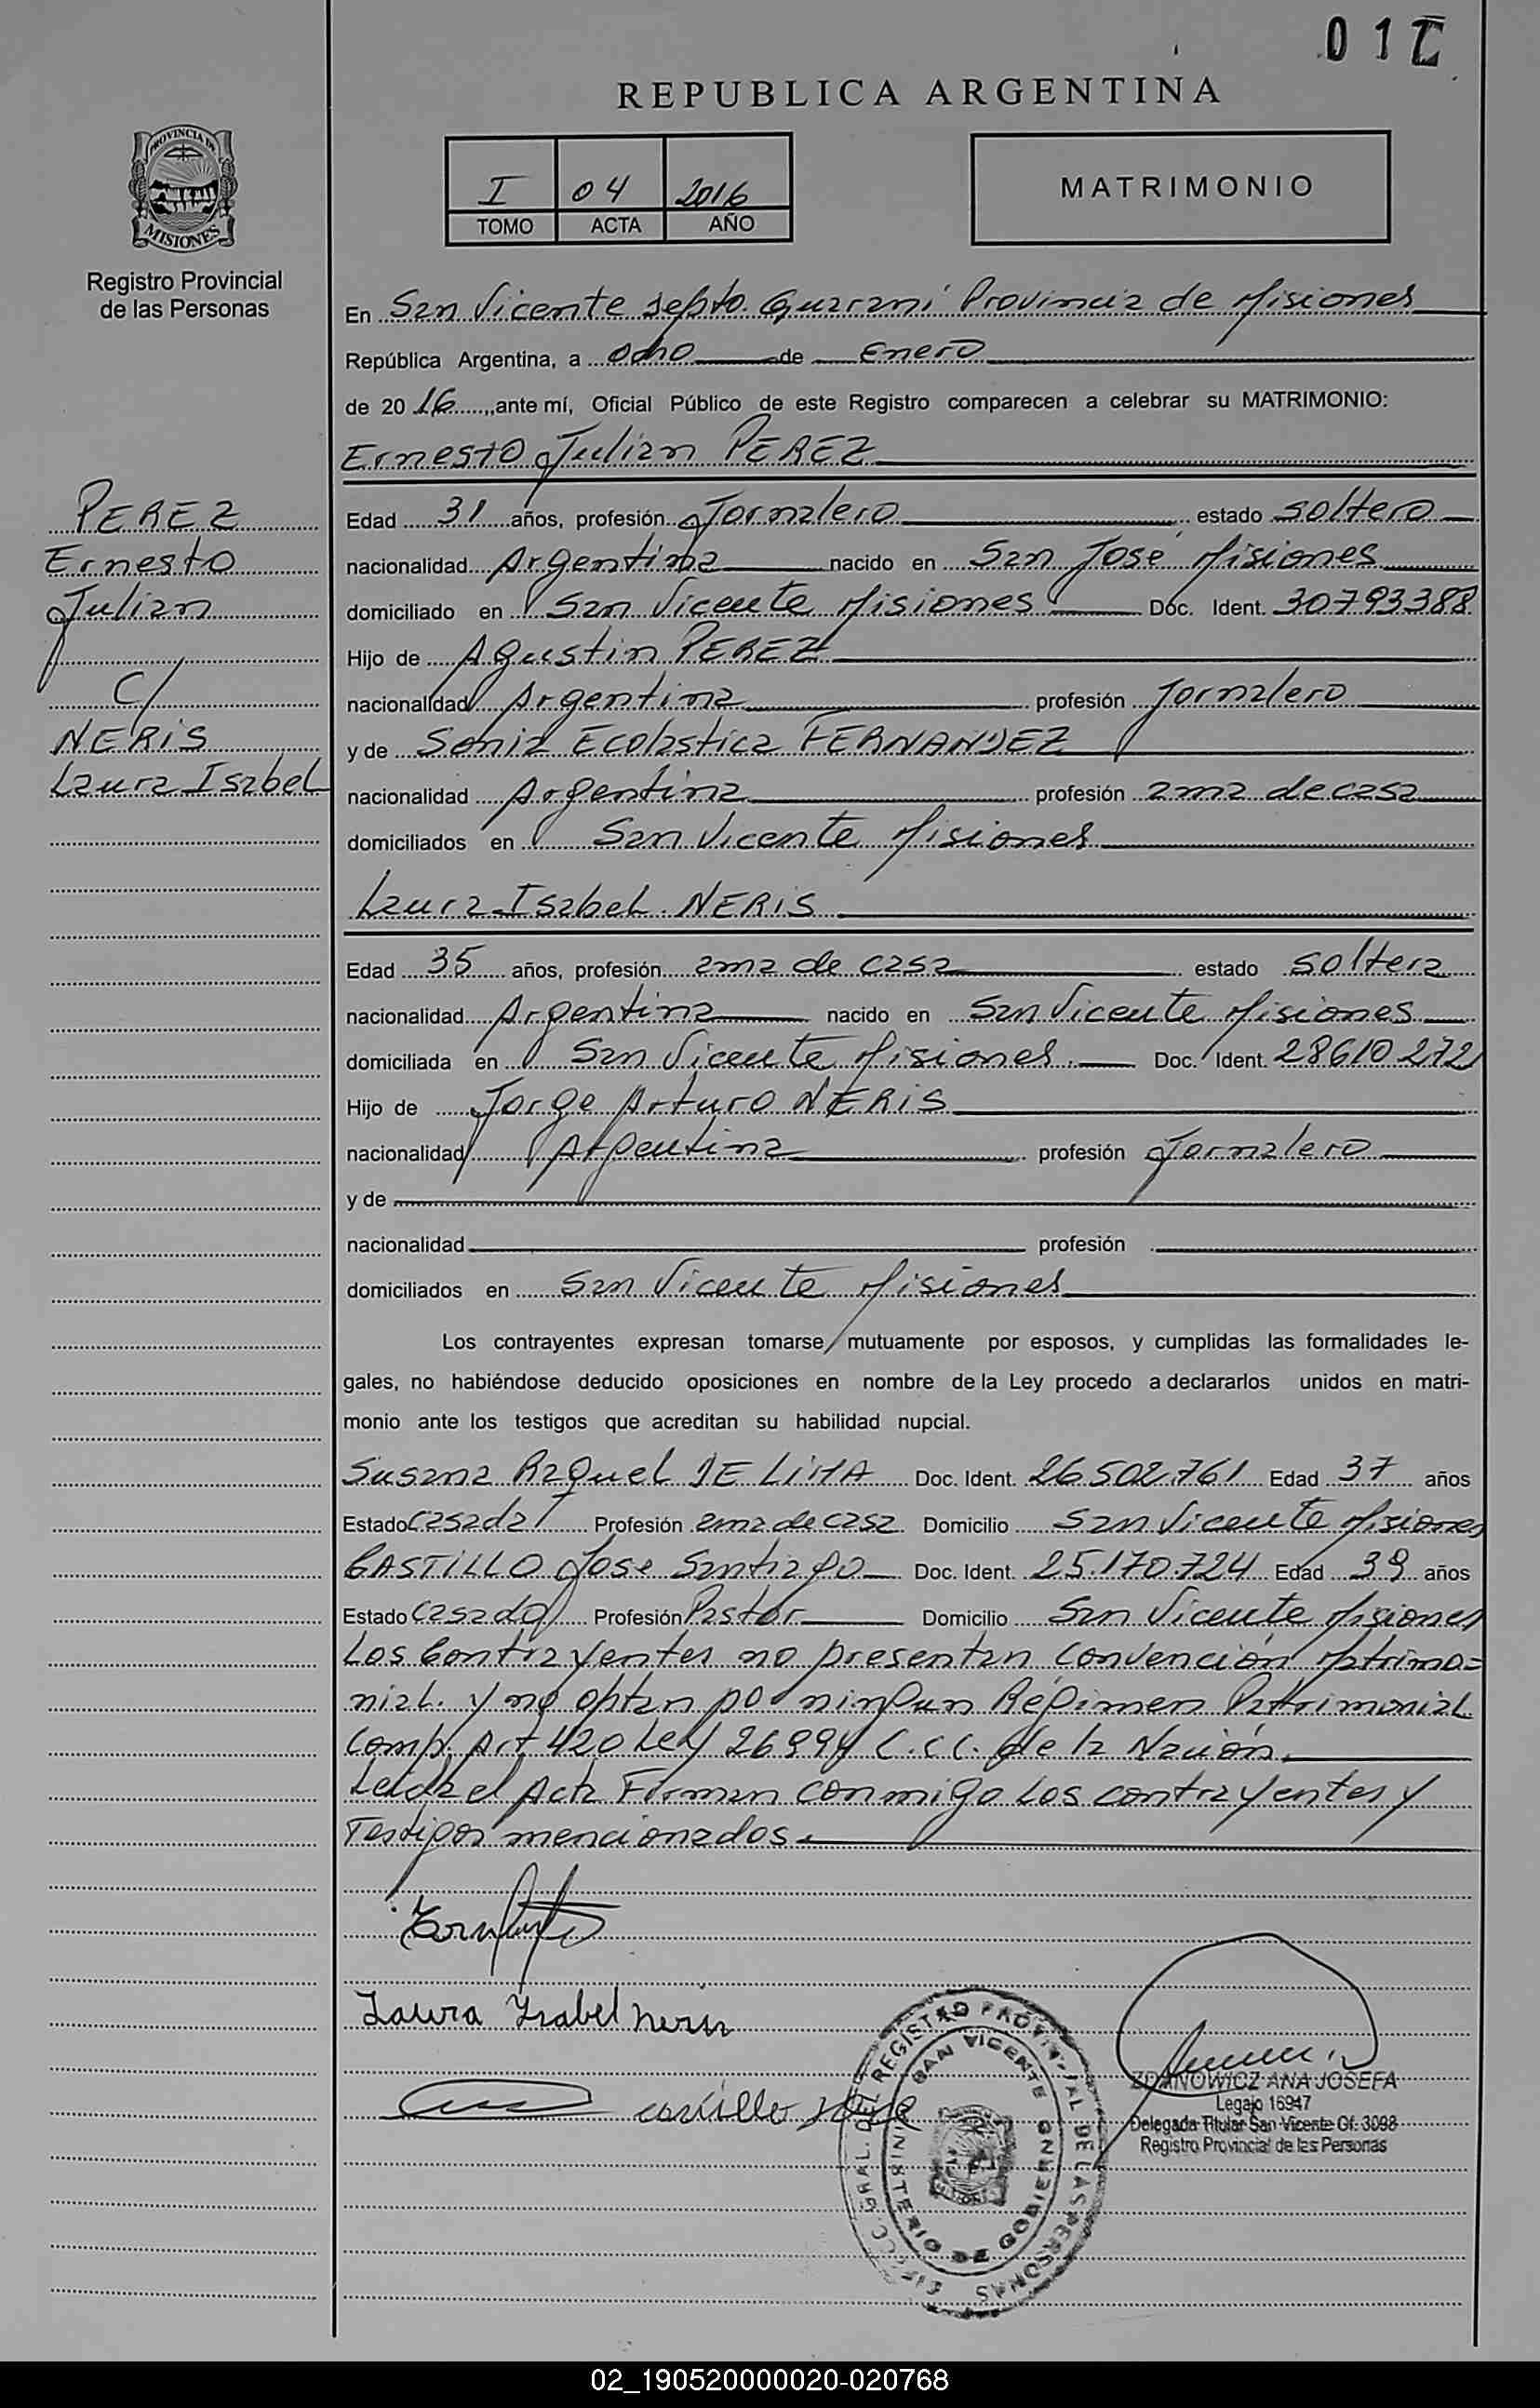 REPUBLICA ARGENTINA
I 04 2016
TOMO ACTA AÑO
MATRIMONIO
PROVINCIA DE
MISIONES
Registro Provincial
de las Personas
En San Vicente Depto. Guarani Provincia de Misiones
República Argentina, a ocho de Enero
de 2016, ante mí, Oficial Público de este Registro comparecen a celebrar su MATRIMONIO:
Ernesto Julian PEREZ
PEREZ
Ernesto
Julian
C/
NERIS
Laura Isabel
Edad 31 años, profesión Jornalero estado soltero
nacionalidad Argentina nacido en San José Misiones
domiciliado en San Vicente Misiones Doc. Ident. 30793388
Hijo de Agustin PEREZ
nacionalidad Argentina profesión Jornalero
y de Sonia Ecolastica FERNANDEZ
nacionalidad Argentina profesión ama de casa
domiciliados en San Vicente Misiones
Laura Isabel NERIS
Edad 35 años, profesión ama de casa estado soltera
nacionalidad Argentina nacido en San Vicente Misiones
domiciliada en San Vicente Misiones Doc. Ident. 28610272
Hijo de Jorge Arturo NERIS
nacionalidad Argentina profesión Jornalero
y de
nacionalidad profesión
domiciliados en San Vicente Misiones
Los contrayentes expresan tomarse mutuamente por esposos, y cumplidas las formalidades le-
gales, no habiéndose deducido oposiciones en nombre de la Ley procedo a declararlos unidos en matri-
monio ante los testigos que acreditan su habilidad nupcial.
Susana Raquel DE LIMA Doc. Ident. 26.502.761 Edad 37 años
Estado casada Profesión ama de casa Domicilio San Vicente Misiones
CASTILLO Jose Santiago Doc. Ident. 25.170.724 Edad 39 años
Estado casado Profesión Pastor Domicilio San Vicente Misiones
Los Contrayentes no presentan Convención Matrimo=
nial. y no optan por ningun Régimen Patrimonial
Comp. Art 420 Ley 26994 C.CC. de la Nación.
Leída el Acta Firman conmigo los contrayentes y
Testigos mencionados.
Laura Ysabel Neris
castillo Jose
REGISTRO PROVINCIAL DE LAS PERSONAS
SAN VICENTE
MINISTERIO DE GOBIERNO
ZDANOWICZ ANA JOSEFA
Legajo 16947
Delegada Titular San Vicente Of. 3098
Registro Provincial de las Personas
02_190520000020-020768